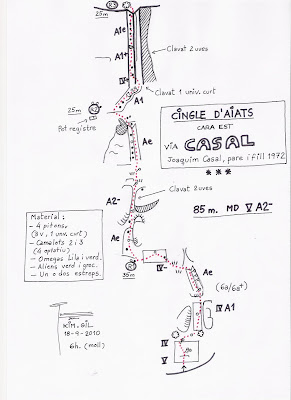 25m
A1e
Clavat 2 uves
A1+
IV
Clavat 1 univ. curt
A1
25m
Pot registre
CINGLE D'AIATS
CARA EST
VIA CASAL
Joaquim Casal, pare i fill 1972
* * *
Ae
Clavat 2 uves
A2-
85 m. MD V A2-
Material:
- 4 pitons,
(3 V, 1 univ. curt)
- Camalots 2 i 3
(4 optatiu)
- Omegas Lila i verd.
- Aliens verd i groc.
- Un o dos estreps.
Ae
35m
IV-
Ae
(6a/6a+)
IV A1
IV
IV
KIM.GIL
18-9-2010
6h. (moll)